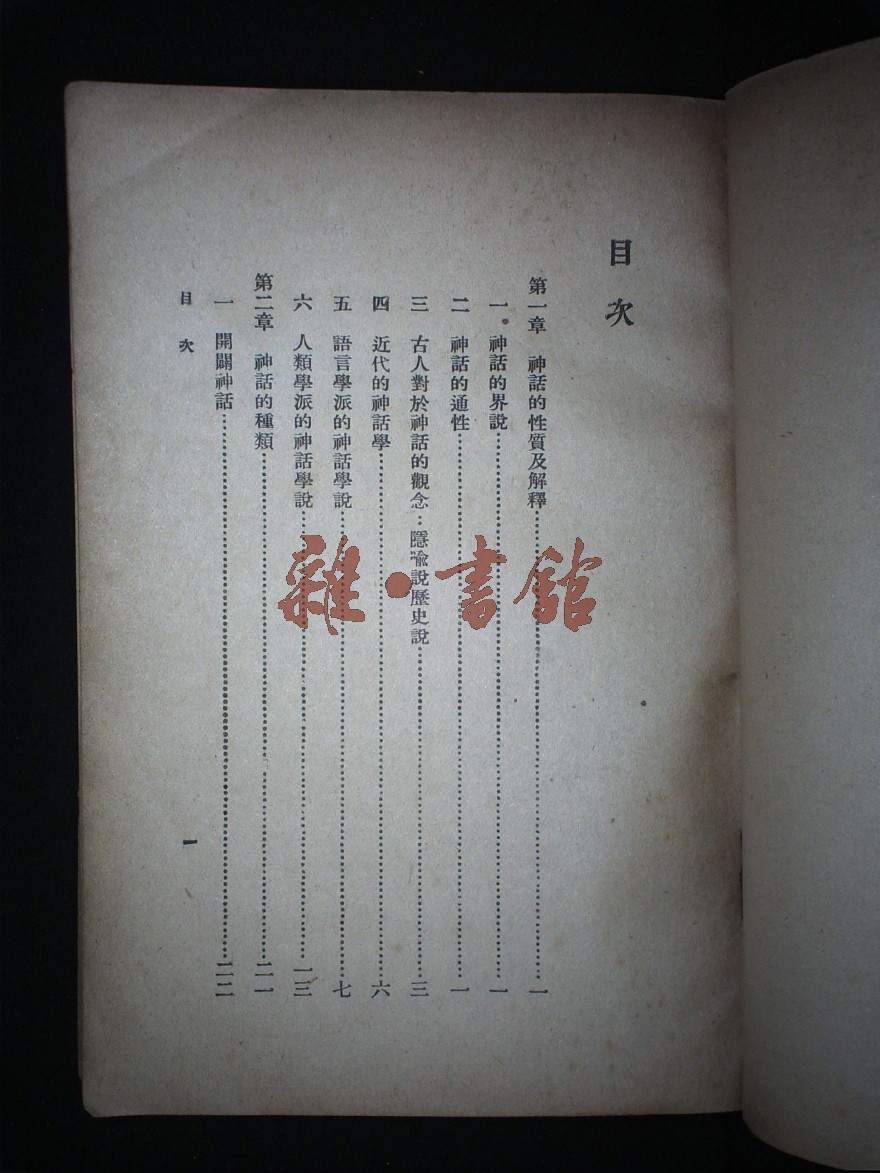 目次
第一章 神話的性質及解釋……一
一 神話的界說……一
二 神話的通性……一
三 古人對於神話的觀念：隱喻說歷史說……三
四 近代的神話學……六
五 語言學派的神話學說……七
六 人類學派的神話學說……一三
第二章 神話的種類……二一
一 開闢神話……二二
目次 一
雜·書館